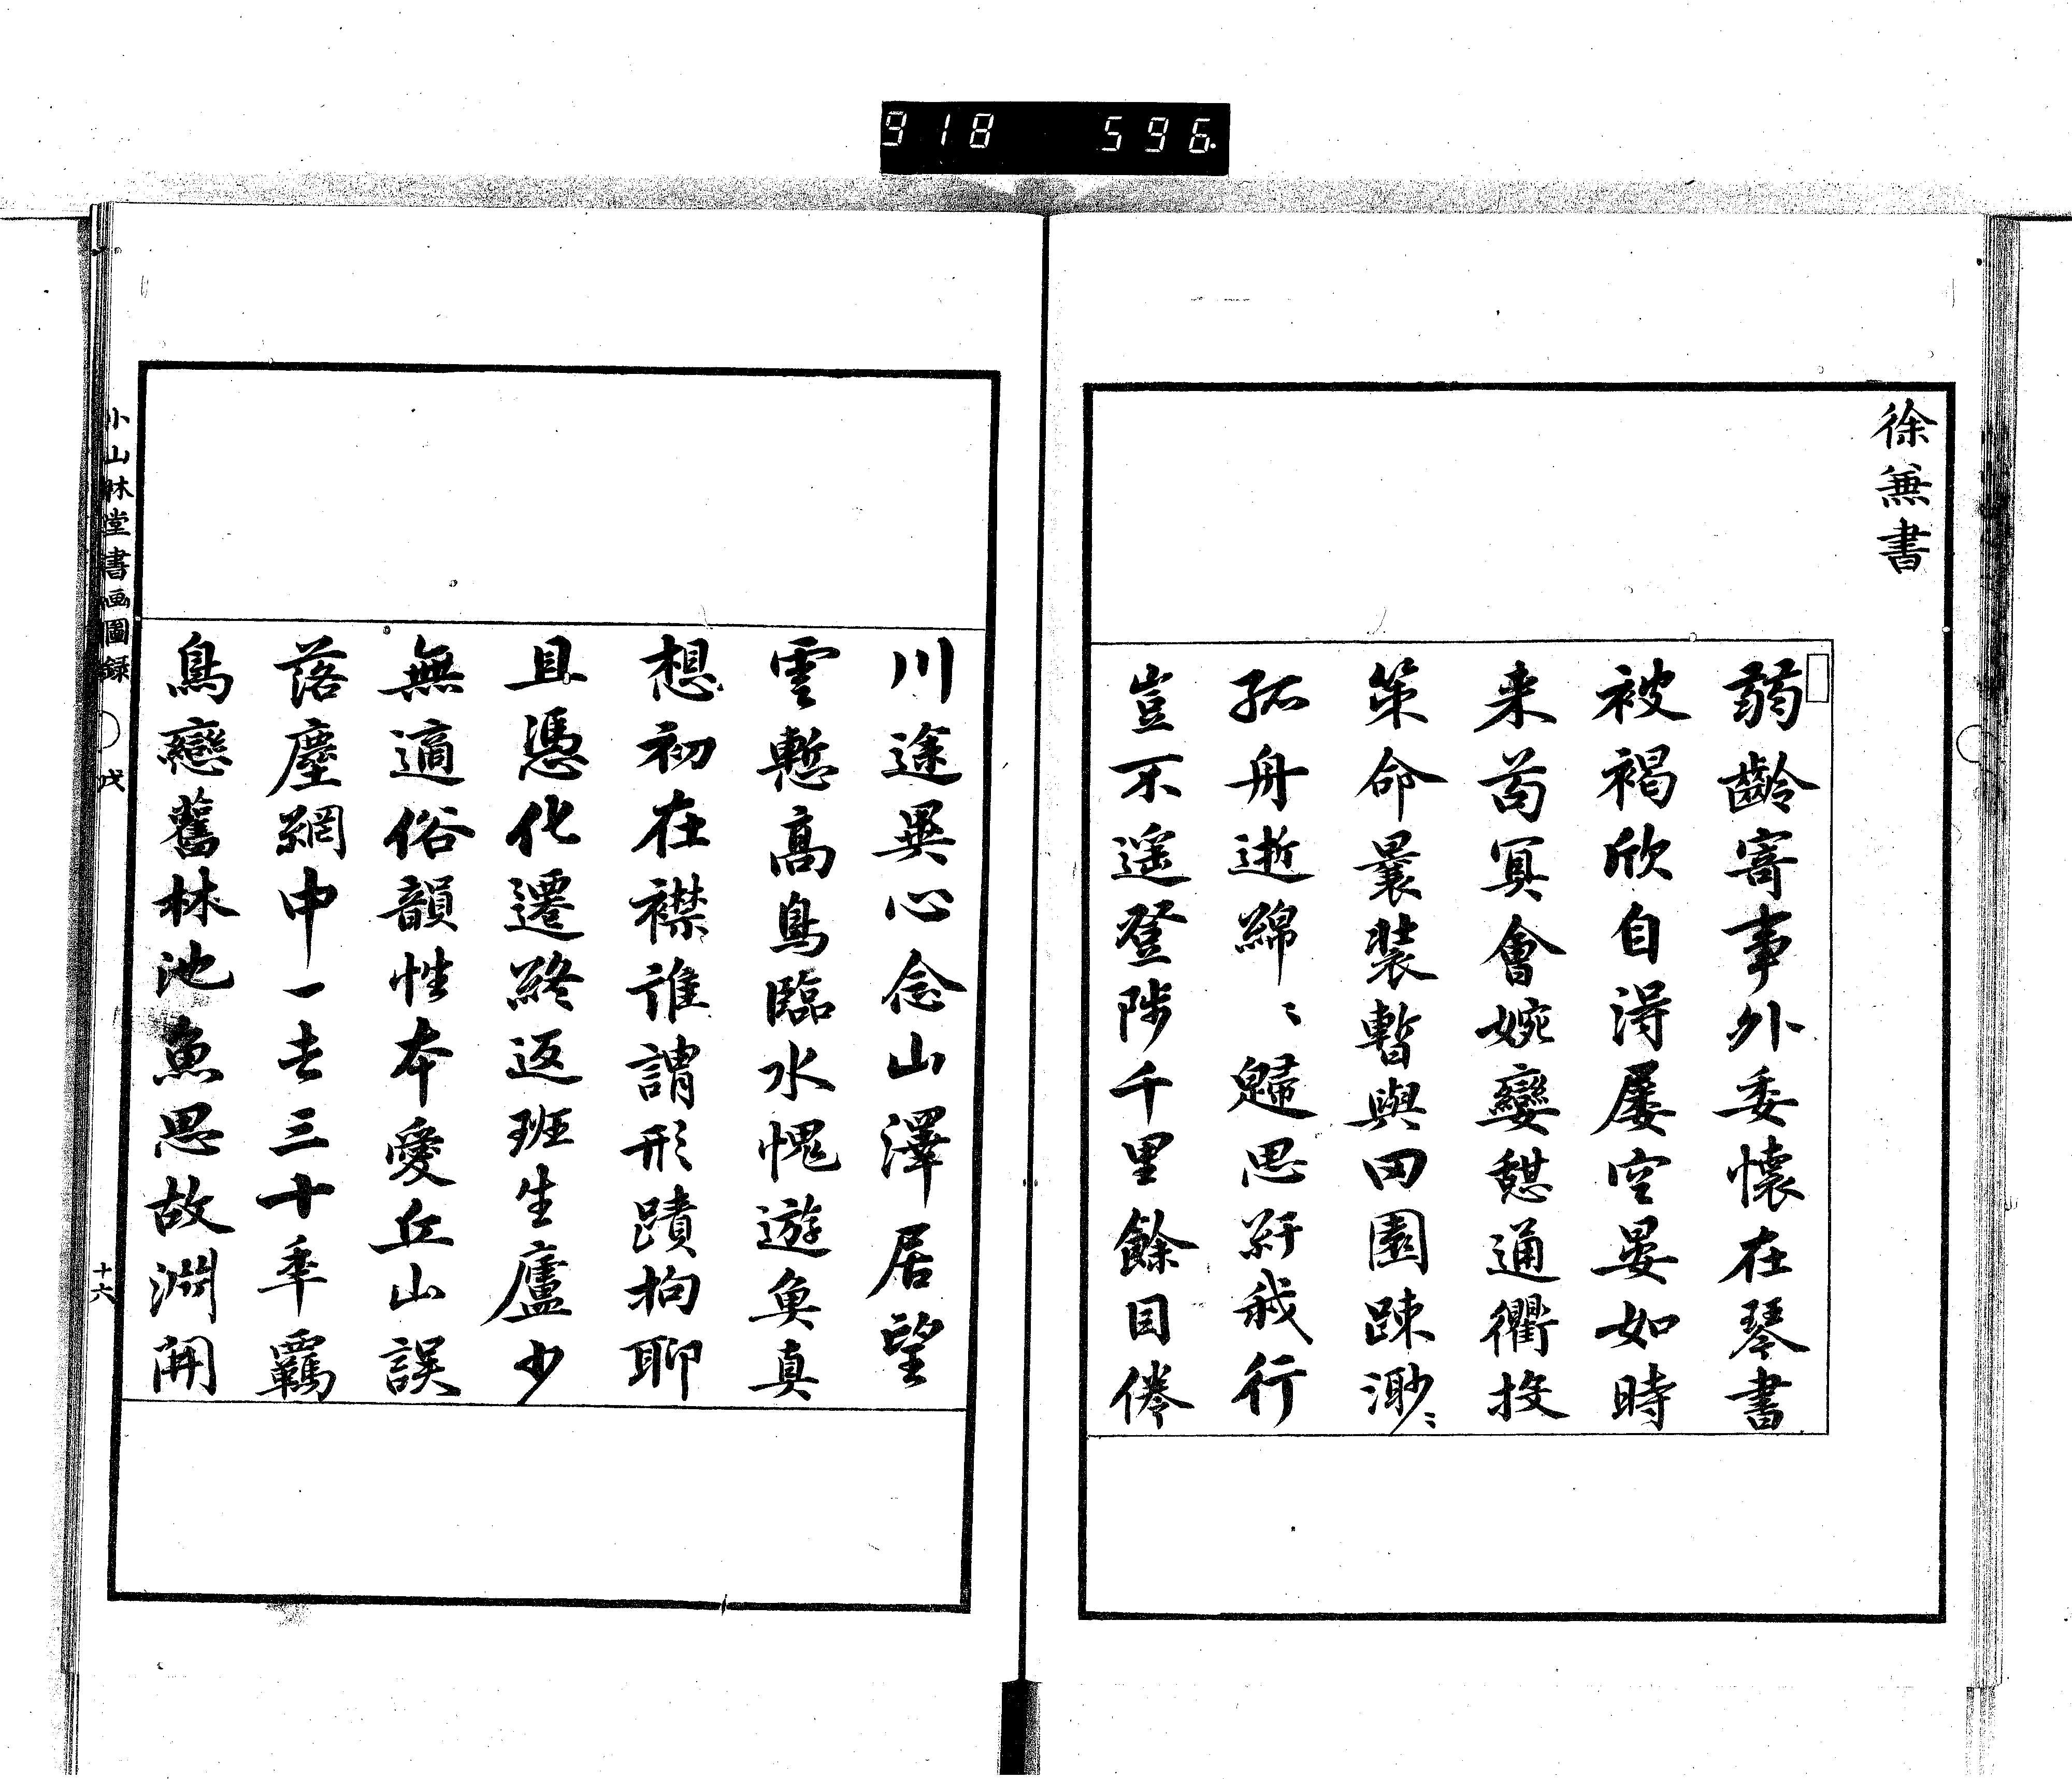 918 596
徐兼書
弱齡寄事外委懷在琴書
被褐欣自得屡空晏如時
来茍冥會婉孌憇通衢投
策命晨装暫與田園踈渺〻
孤舟逝綿〻歸思紆我行
豈不遥登陟千里餘目倦
川途異心念山澤居望
雲慙高鳥臨水愧遊魚真
想初在襟誰謂形蹟拘聊
且憑化遷終返班生廬少
無適俗韻性本愛丘山誤
落塵網中一去三十年羈
鳥戀舊林池魚思故淵開
小山林堂書画圖録
戊
十六